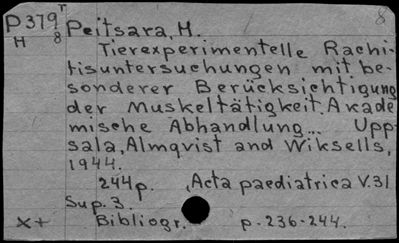 P379 T 8
H 8 Peitsara, H.
Tierexperimentelle Rachi-
tisuntersuchungen mit be-
sonderer Berücksichtigung
der Muskeltätigkeit. Akade
mische Abhandlung... Upp-
sala, Almqvist and Wiksells,
1944.
244p. ,Acta paediatrica V.31
Sup. 3.
x+ Bibliogr. p. 236-244.